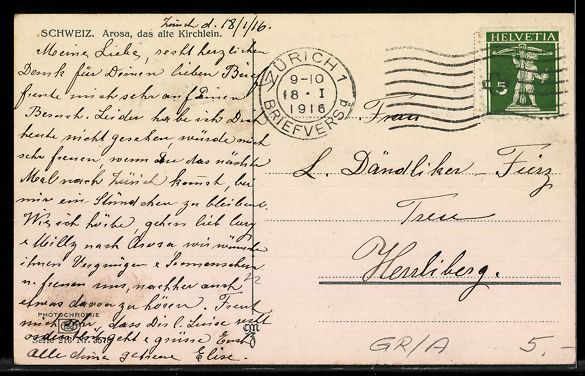 Zürich d. 18/1/16.
SCHWEIZ. Arosa, das alte Kirchlein.
Meine Liebe, recht herzlichen
Dank für Deinen lieben
freute mich sehr auf Deinen
Besuch. Leider habe ich Dich
heute nicht gesehen, würde mich
sehr freuen wenn Du das nächste
Mal nach Zürich kommst, bei
mir ein Stündchen zu bleiben.
Wie ich hörte, gehen lieb
& Milly nach Arosa wir wünschen
ihnen Vergnügen & Sonnenschein
u. freuen uns, nachher auch
etwas davon zu hören. Freut
mich sehr, dass Dir l. Luise
geht & grüsse Euch
Alle Elise.
PHOTOCHROMIE
Serie 218 Nr.
ZÜRICH 1
9-10
18·I
1916
BRIEFVERS.
HELVETIA
5
Frau
L. Dändliker-Fierz
Herrliberg.
GR/A
5.-